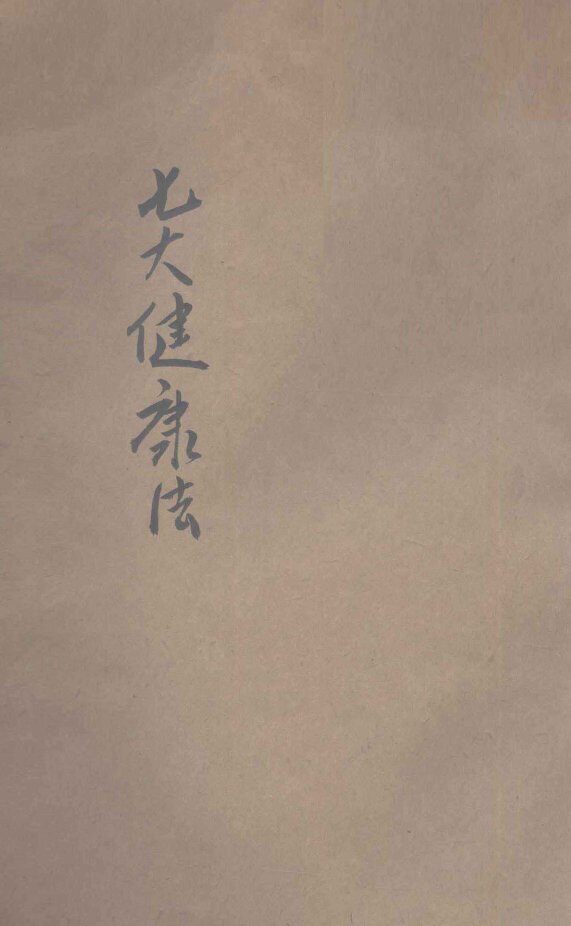 七大健康法